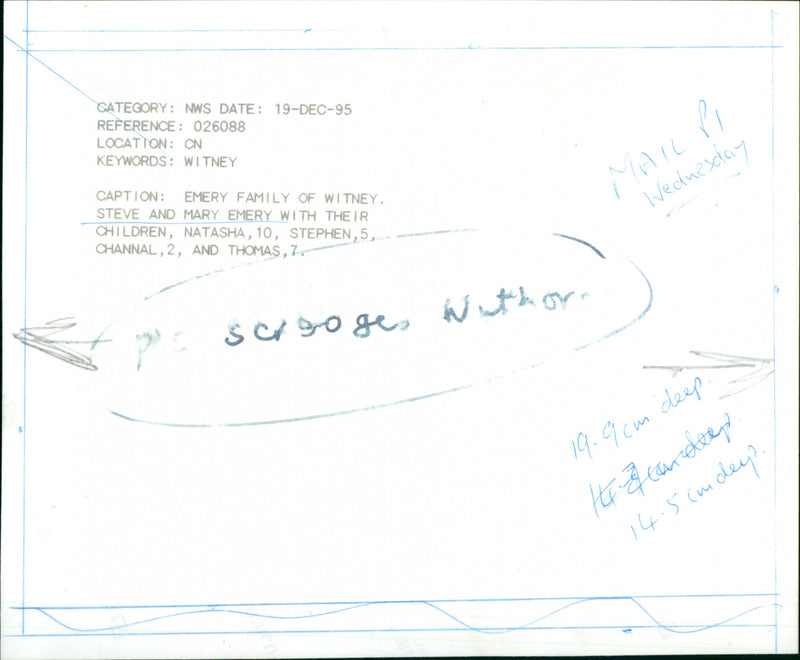 CATEGORY: NWS DATE: 19-DEC-95
REFERENCE: 026088
LOCATION: CN
KEYWORDS: WITNEY
CAPTION: EMERY FAMILY OF WITNEY.
STEVE AND MARY EMERY WITH THEIR
CHILDREN, NATASHA,10, STEPHEN,5,
CHANNAL,2, AND THOMAS,7.
MAIL P1
Wednesday
scrooges
19.9cm deep.
14.5cm deep.